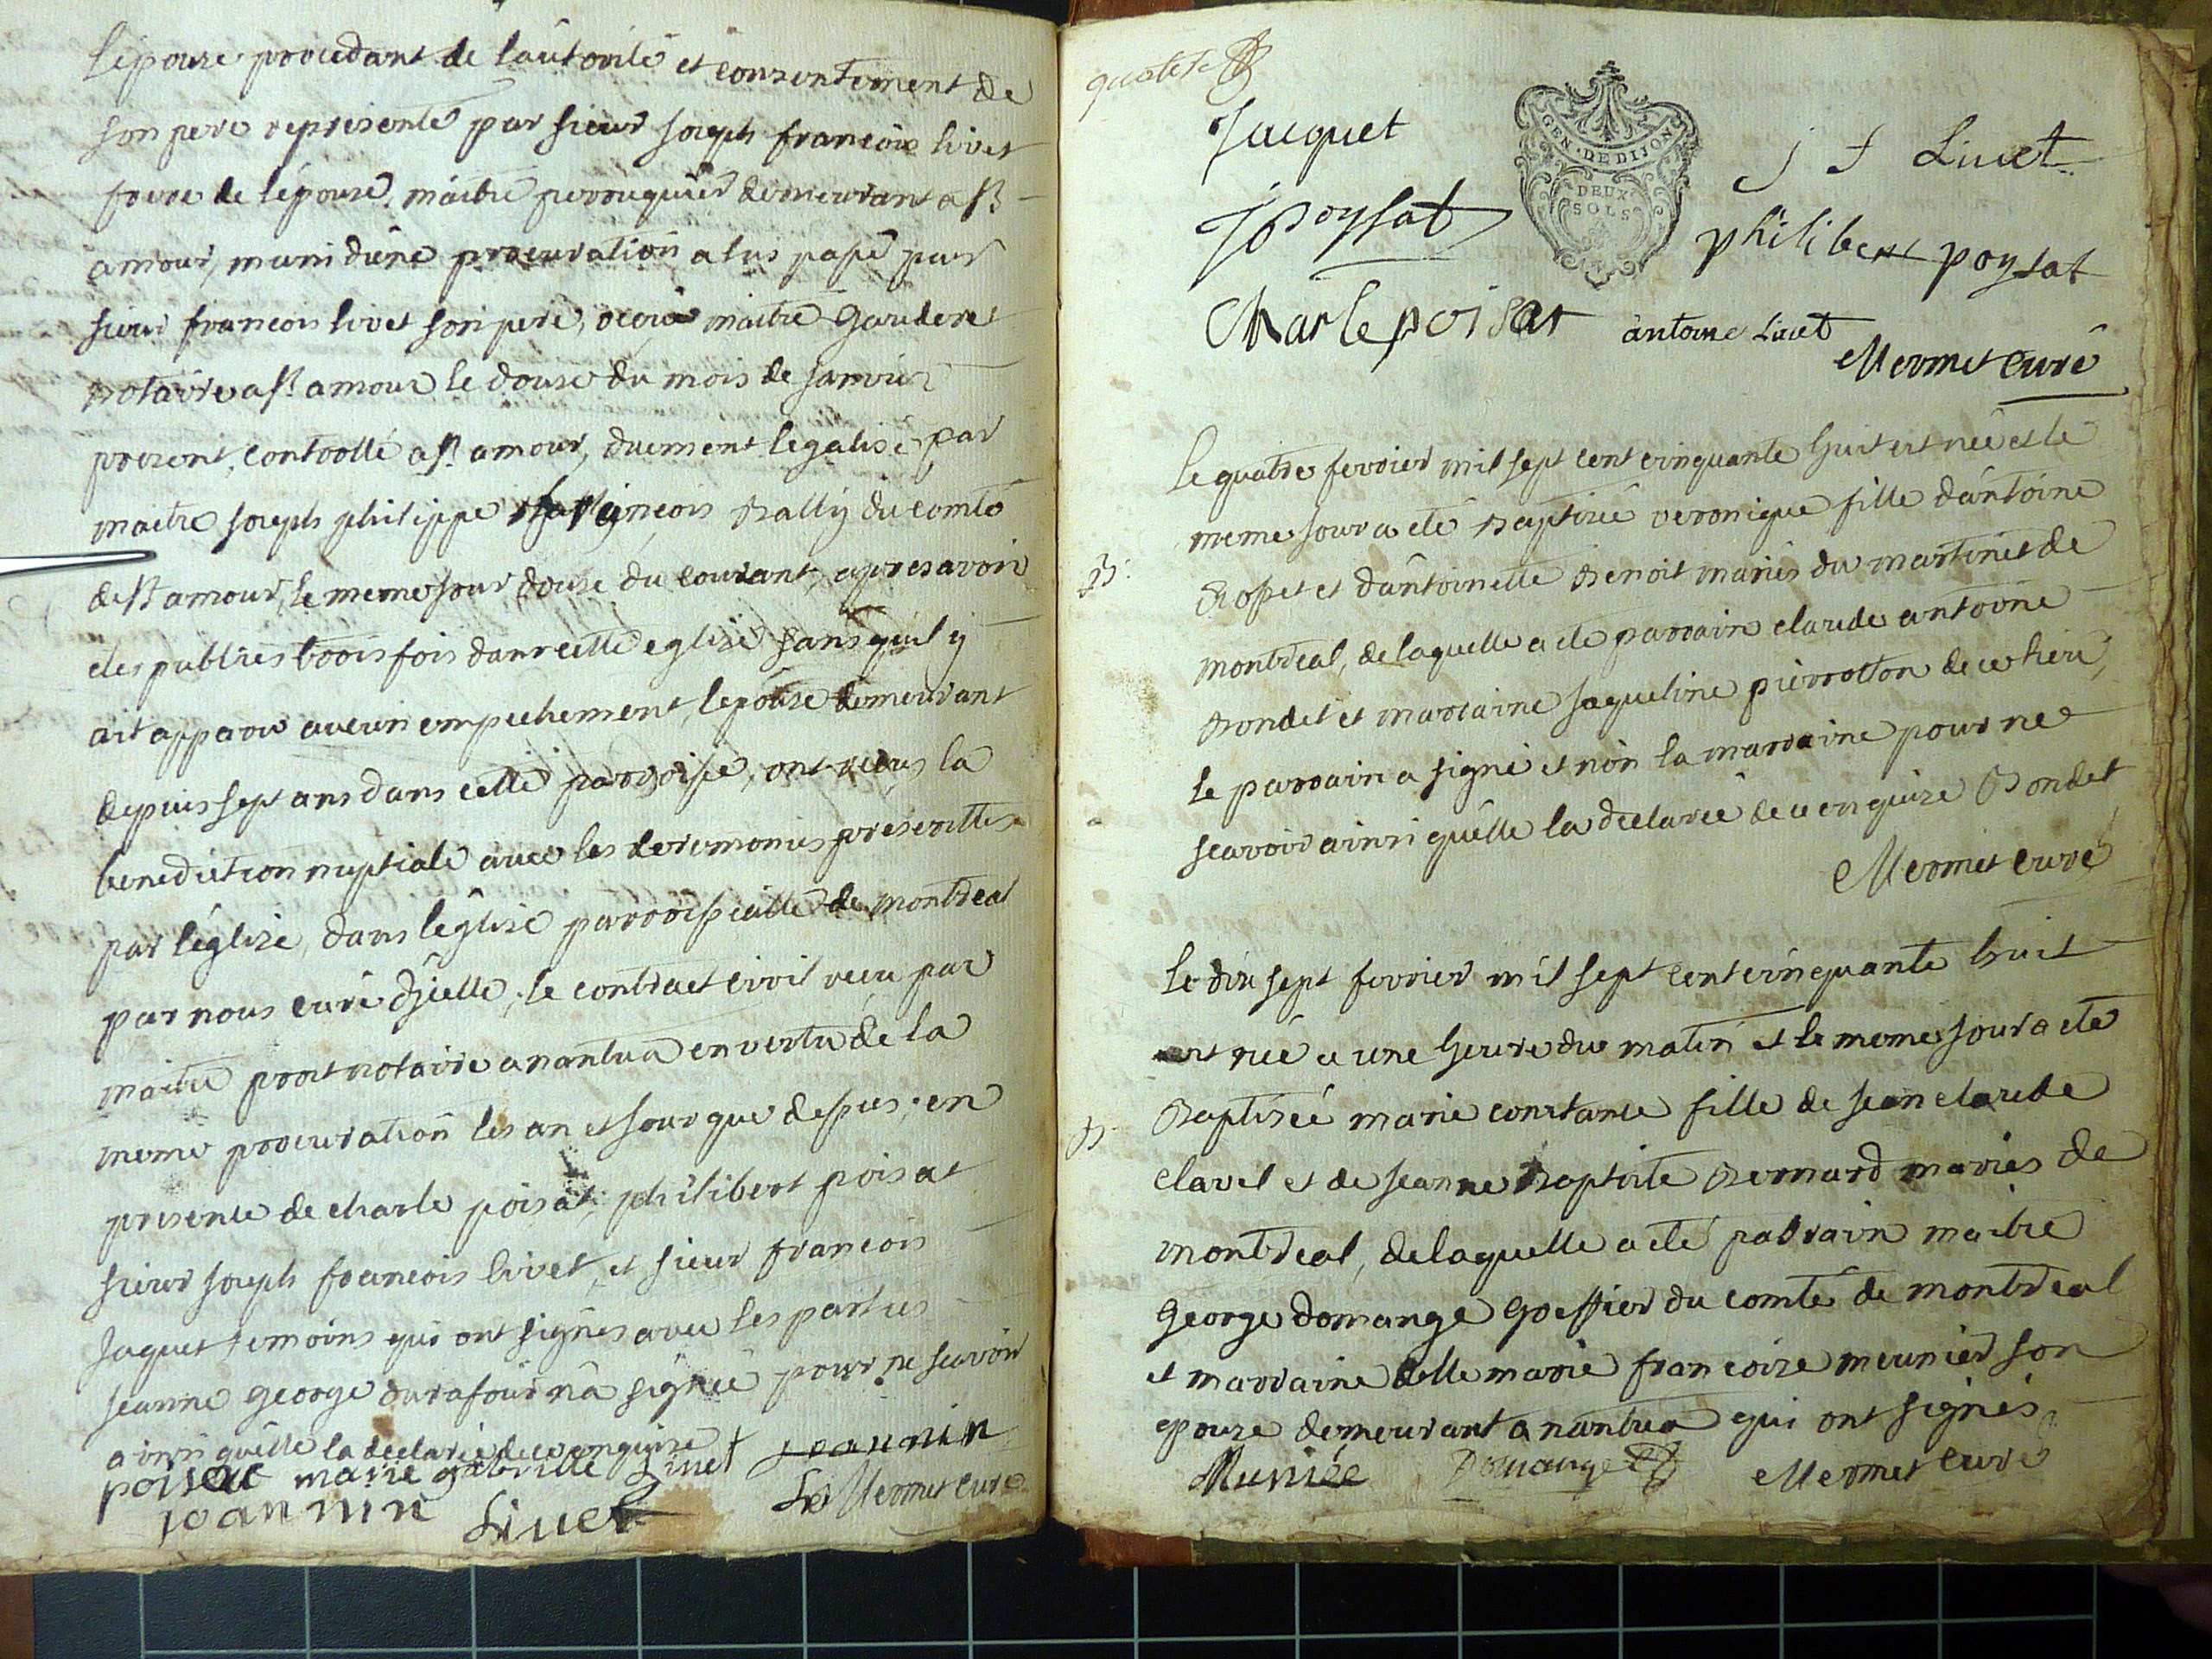 L'epouse procedant de l'autorité et consentement de
son pere representé par sieur joseph francois livet
frere de l'épouse, maitre perruquier demeurant a st
amour, muni d'une procuration a lui passé par
sieur francois livet son pere, recüe maitre
notaire a st amour le douse du mois de janvier
present, controllé a st amour, duement legalisé par
maitre joseph philippe Bally du comté
de st amour, le meme jour douse du courant, apres avoir
eles publiés trois fois dans cette eglise sans qu'il y
ait apparu aucun empechement, l'epouse demeurant
depuis sept ans dans cette parroisse, ont reçus la
benediction nuptiale avec les ceremonies prescrittes
par l'église, dans l'église parroissialle de montreal
par nous curé d'jcelle, le contract civil recu par
maitre prost notaire a nantua en vertu de la
meme procuration les an et jour que dessus, en
presence de charle poisat, philibert poisat
sieur joseph francois livet, et sieur francois
jaquet temoins qui ont signés avec les parties
jeanne george durafour n'a signée pour ne scavoir
ainsi quélle la declarée de ce enquise jeannin
poisat marie gabrielle Livet
joannin Livet Mermet curé
Jacquet
GEN. DE DIJON
DEUX
SOLS
J f Livet
Jpoysat
philibert poysat
Charle poisat antoine Livet
Mermet curé
le quatre fevrier mil sept cent cinquante huit est née et le
meme jour a eté Baptisée veronique fille d'antoine
B.
Rosset et d'antoinette Benoit mariés du martinet de
montreal, de laquelle a eté parrain claude antoine
Bondet et marraine jaqueline pierrotton de ce lieu,
le parrain a signé et non la marraine pour ne
scavoir ainsi quélle la declarée de ce enquise Bondet
Mermet curé
le dix sept fevrier mil sept cent cinquante huit
est née a une heure du matin et le meme jour a eté
B.
Baptisée marie constance fille de jean claude
clavel et de jeanne Baptiste Bernard mariés de
montreal, de laquelle a eté parrain maitre
george domange greffier du comté de montreal
et marraine delle marie francoise meunier son
epouse demeurant a nantua qui ont signés
Munier Domange Mermet curé